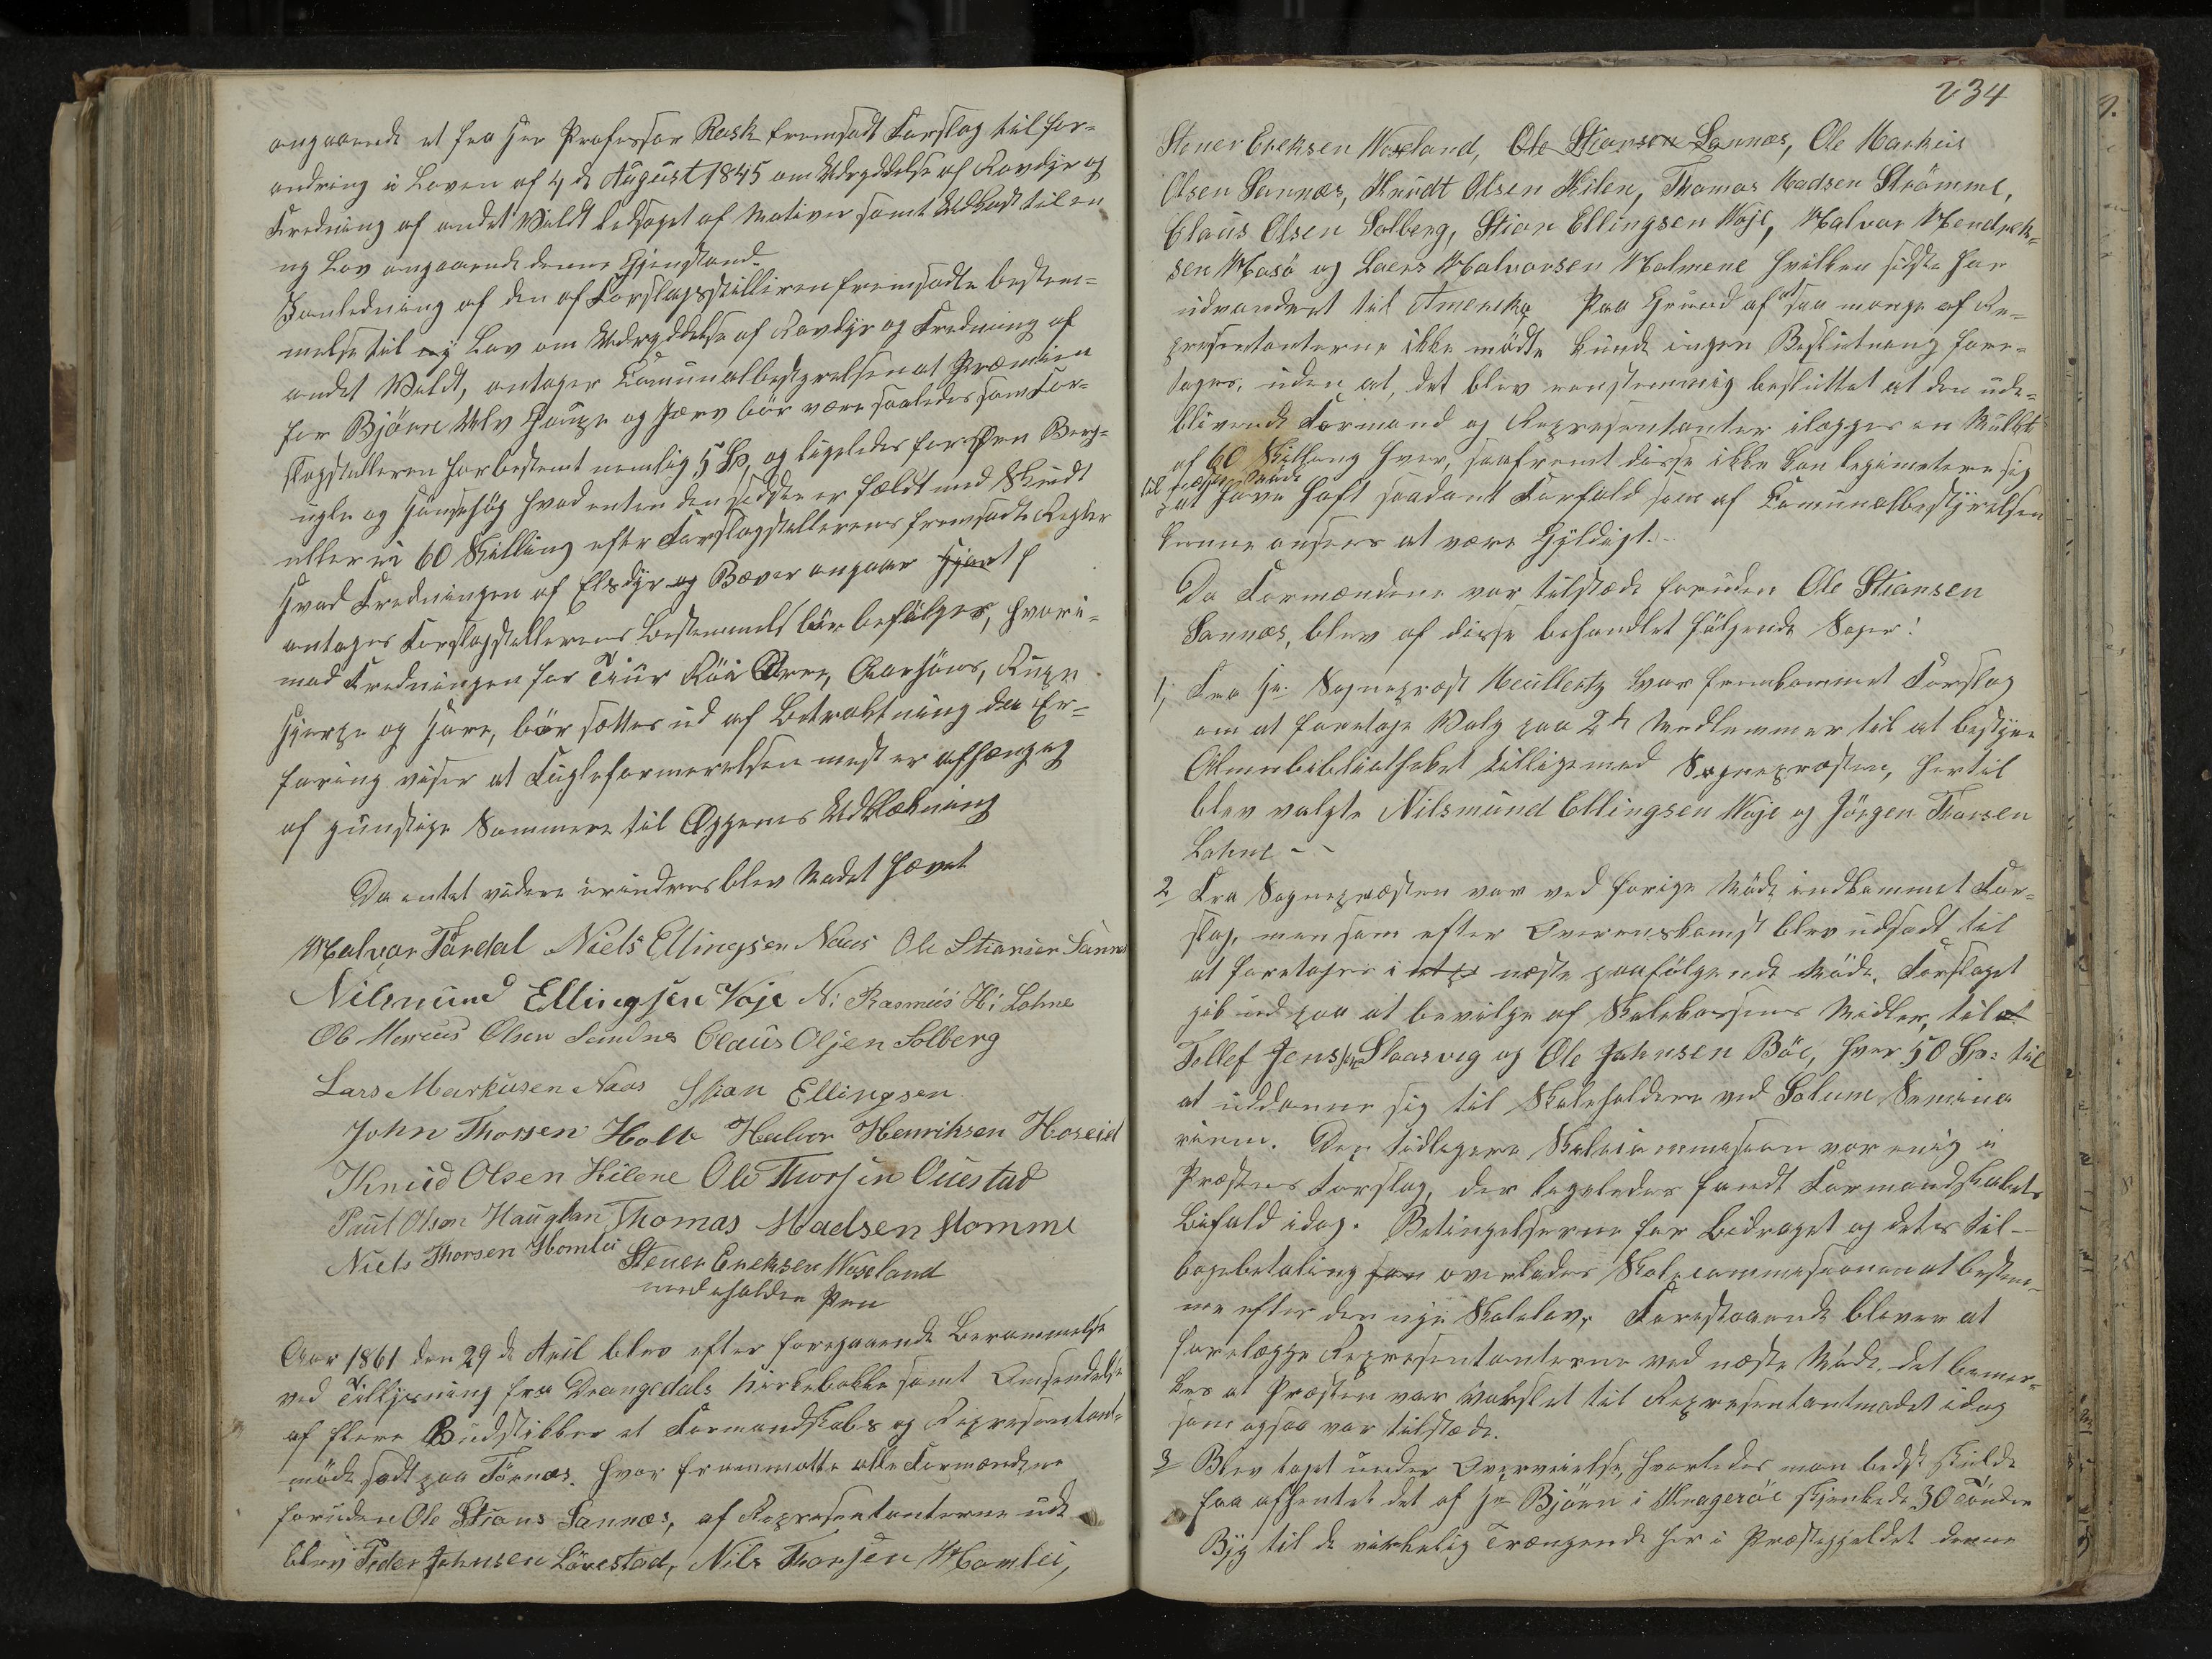 angaaende et fra Herr Professor Rask fremsadt Forslag til for-
andring i Loven af 4de August 1845 om Udryddelse af Rovdyr og
Fredning af andet Vildt ledsaget af Motiver samt Udkast til en
ny Lov angaaende denne Gjenstand.
I Anledning af den af Forslagsstilleren fremsadte bestem-
melse til ny Lov om Udryddelse af Rovdyr og Fredning af
andet Vildt, antager Comunalbestyrelsen at Præmien
for Bjørne Ulv Goupe og Jærv bør være saaledes som For-
slagstilleren har bestemt nemlig 5 Sp, og ligeledes for Ørn Berg-
ugle og Hønsehøg hvad enten den sidste er fældt med Skudt
eller ei 60 Skilling efter Forslagstillerens fremsadte Regler
Hvad Fredningen af Elsdyr og Bæver angaar Hjort
antages Forslagstillerens Bestemmelse bør befølges, hvori-
mod Fredningen for Tiur Røi Orre, Aarhøns, Rype
Hjerpe og Hare, bør sættes ud af Betraktning da Er-
faring viser at Fugleformerelsen mest er afhængig
af gunstige Sommere til Æggenes Udklækning
Da entet videre erindres blev Mødet hævet
Halvor Tørdal Niels Ellingsen Naas Ole Stiansen Sannes
Nilsmund Ellingsen Voje N: Rasmus H: Lohne
Ole Marcus Olsen Sandnes Claus Olsen Solberg
Lars Markusen Naas Stian Ellingsen
John Thorsen Holte Halvor Henriksen Hoseid
Knud Olsen Kilene Ole Thorsen Ouestad
Paul Olsen Haugland Thomas Madsen Stømme
Niels Thorsen Homlei Stener Ereksen Woseland
med iholden Pen
Aar 1861 den 29de April blev efter foregaaende Berammelse
ved Tillysning fra Drangedals Kirkebakke samt Omsendelse
af flere Budstikker et Formandskabs og Representant-
møde sadt paa Tørnæs. hvor fremmøtte alle Formændene
foruden Ole Stians Sannæs, af Representanterne ude
blev Peder Johnsen Løvestad, Nils Thorsen Homlei,
234
Stener Ereksen Woseland, Ole Stiansen Sannæs, Ole Markus
Olsen Sannæs, Knudt Olsen Kilen, Thomas Madsen Strømme,
Claus Olsen Solberg, Stian Ellingsen Woje, Halvor Hendrek-
sen Hosø og Laers Halvorsen Holmene hvilken sidste har
udvandret til Amerika Paa Grund af at saa mange af Re-
presentanterne ikke mødte kunde ingen Beslutning fore-
tages, uden at, det blev eenstemmig besluttet at den ude-
blivende Formand og Representanter ilægges en Mulkt
af 60 Skilling hver, saafremt disse ikke kan legimetere sig
til næste Møde
at have haft saadant Forfald som af Comunalbestyrelsen
kunne ansees at være Gyldigt.
Da Formændene var tilstæde foruden Ole Stiansen
Sannæs, blev af disse behandlet følgende Sager!
1, Fra Hr. Sognepræst Meullertz var fremkommet Forslag
om at foretage Valg paa 2de Medlemmer til at bestyre
Almuebibliotheket tilligemed Sognepræsten, hertil
blev valgte Nilsmund Ellingsen Woje og Jørgen Thorsen
Lohne
2 Fra Sognepræsten var ved forige Møde indkommet For-
slag, men som efter Overenskomst blev udsadt til
at foretages i næste paafølgende Møde. Forslaget
gik ud paa at bevilge af Skolekassens Midler, til at
Tellef Jenssen Slaasveg og Ole Johnsen Böe, hver 50 Sp: til
at uddanne sig til Skoleholdere ved Solum Semina
rium. Den tidligere Skolecommission var enig i
Præstens Forslag, der ligeledes fandt Formandskabets
Bifald idag. Betingelserne for Bidraget og dets til-
bagebetaling overlades Skolecommissionen at bestem-
me efter den nye Skolelov. Forestaaende bliver at
forelægge Representanterne ved næste Møde. det bemær-
kes at Præsten var varslet til Representantmødet idag
som ogsaa var tilstæde.
3 Blev taget under Overveielse, hvorledes man bedst skulde
faa afhentet det af Hr Bjørn i Kragerøe skjenkede 30 Tønder
Byg til de virkelig Trængende her i Præstegjeldet denne